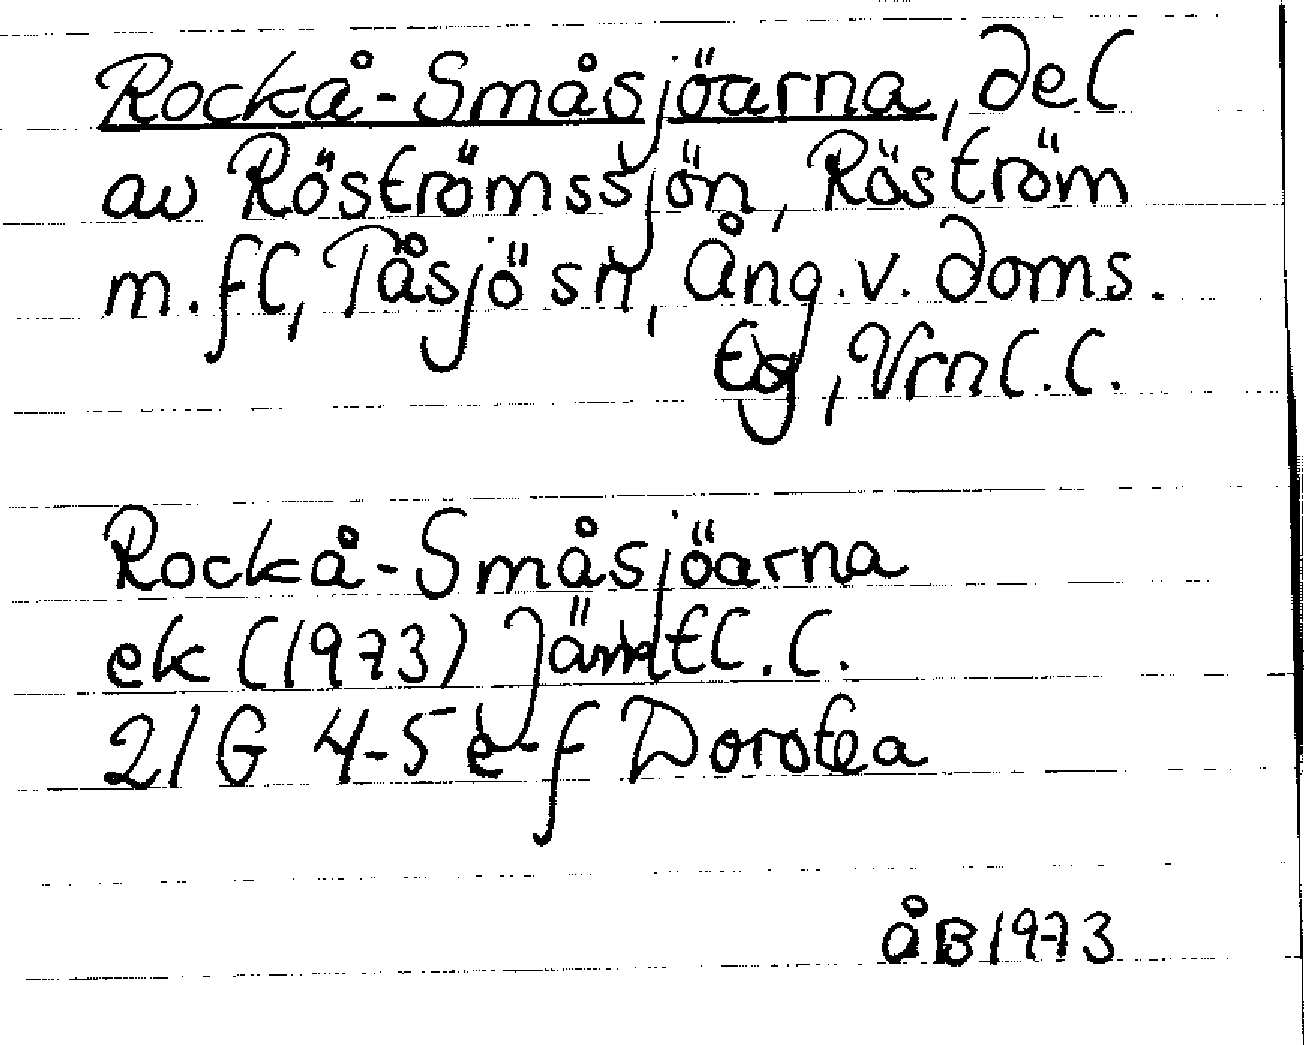 Rockå-Småsjöarna, del
av Röströmssjön, Röström
m.fl, Tåsjö sn, Ång.v. doms.
tg, Vrnl.l.
Rockå-Småsjöarna
ek (1973) Jämtl.l.
21 G 4-5 e-f Dorotea
åB 1973